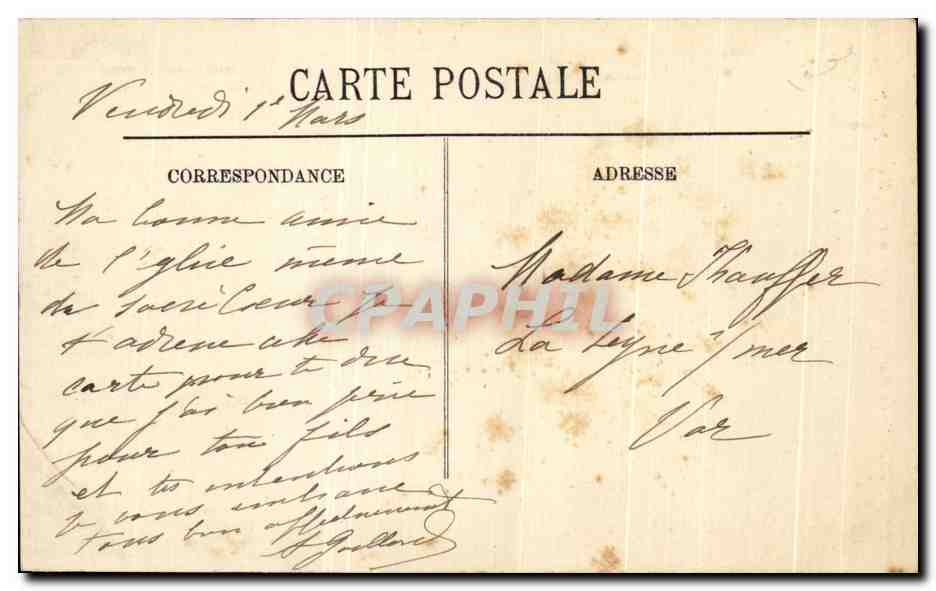 CARTE POSTALE
Vendredi 1er Mars
CORRESPONDANCE
Ma bonne amie
de l'église même
du Sacré Coeur je
t'adresse cette
carte pour te dire
que j'ai bien prié
pour ton fils
et tes intentions
Je vous embrasse
tous bien affectueusement
ADRESSE
Madame
La Seyne s/ mer
Var
CPAPHIL